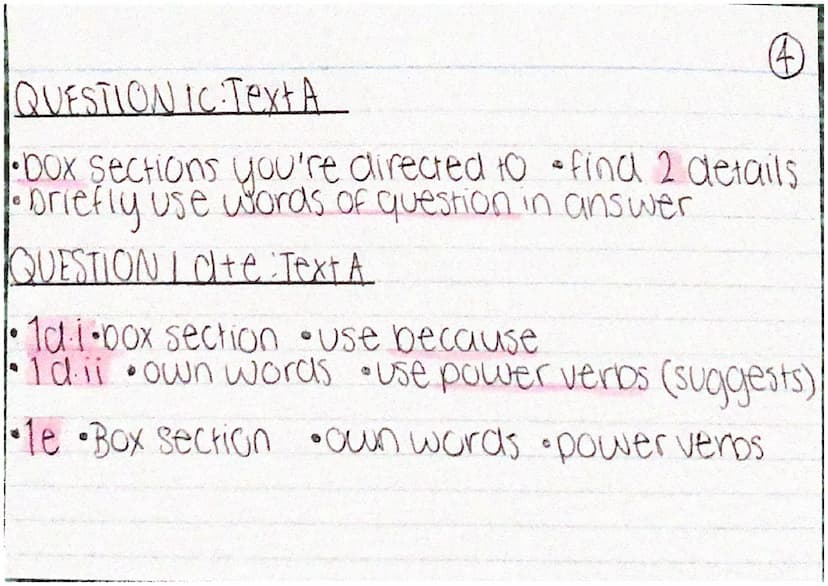 4
QUESTION 1C: Text A
•box sections you're directed to •find 2 details
•briefly use words of question in answer
QUESTION 1 d+e: Text A
• 1d.i •box section •use because
• 1d.ii •own words •use power verbs (suggests)
•1e •Box section •own words •power verbs